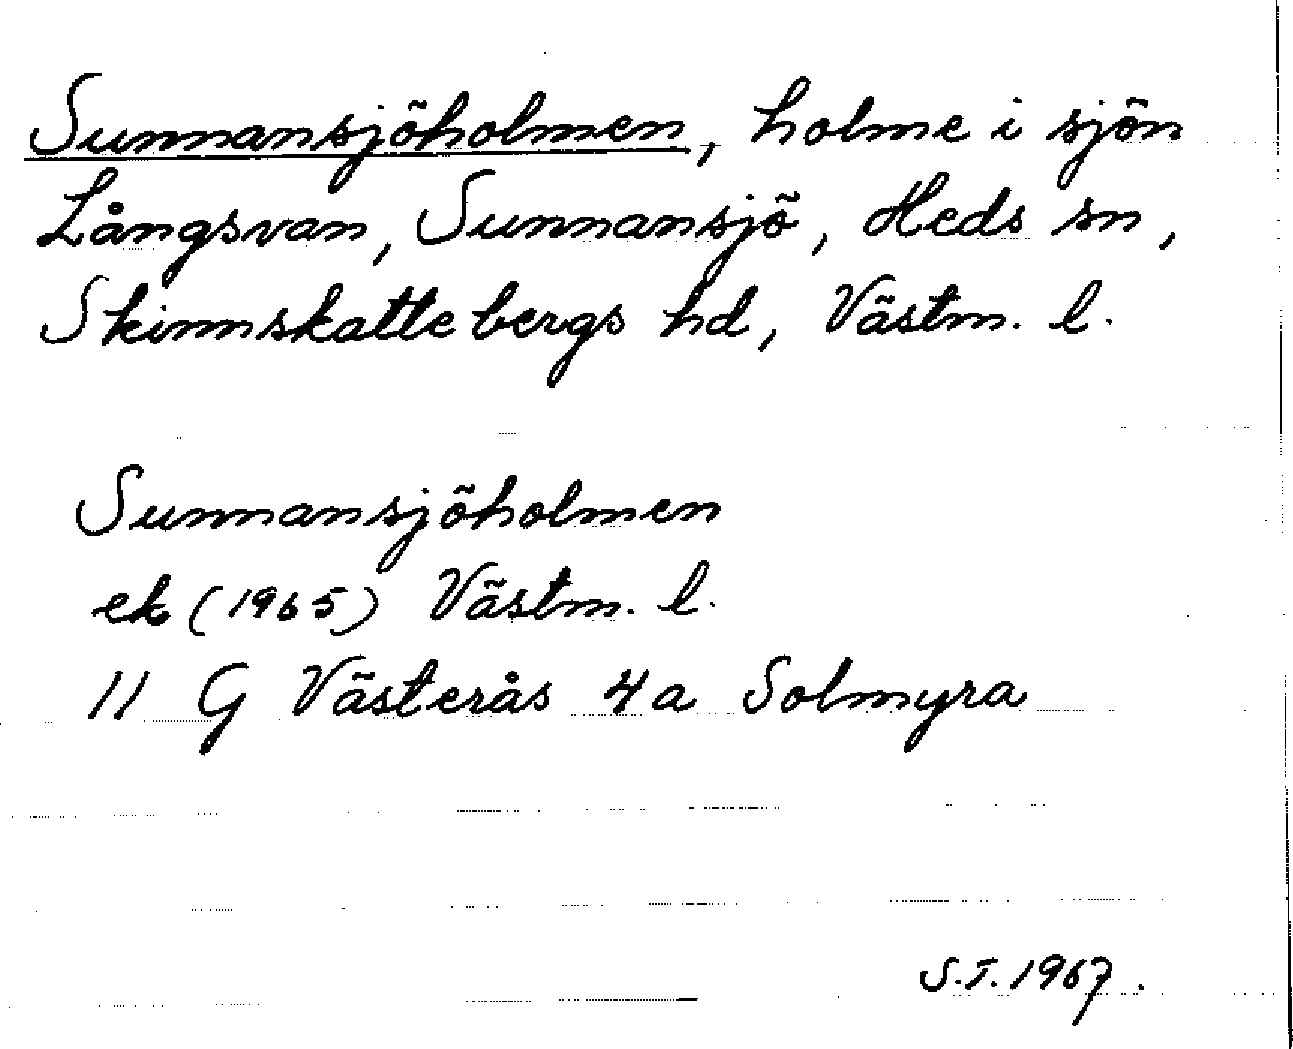 Sunnansjöholmen, holme i sjön
Långsvan, Sunnansjö, Heds sn,
Skinnskattebergs hd, Västm. l.
Sunnansjöholmen
ek (1965) Västm. l.
11 G Västerås 4a Solmyra
S.T. 1967.